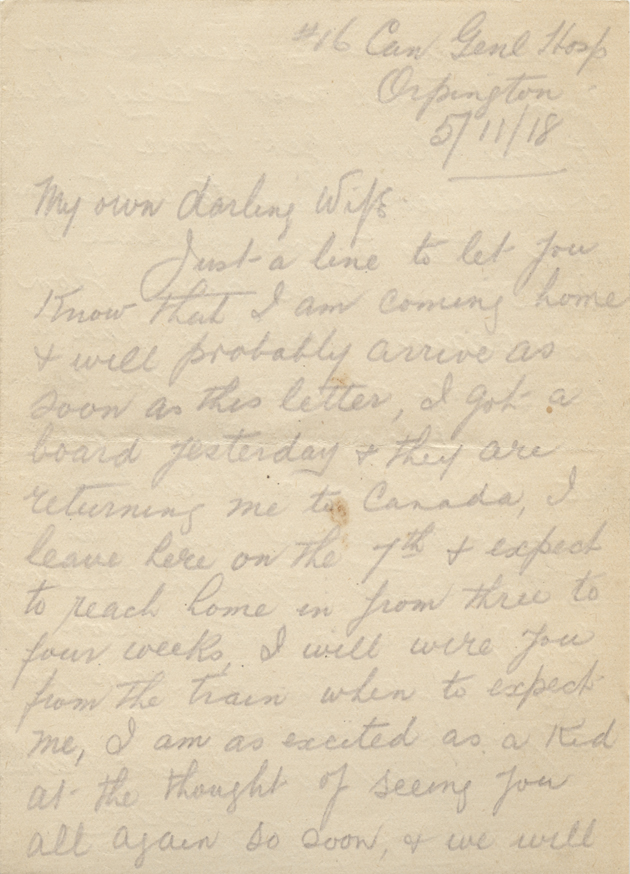 #16 Can Genl Hosp
Orpington
5/11/18
My own darling Wife
Just a line to let you
Know that I am coming home
& will probably arrive as
soon as this letter, I got a
board yesterday & they are
returning me to Canada, I
leave here on the 7th & expect
to reach home in from three to
four weeks, I will wire you
from the train when to expect
me, I am as excited as a Kid
at the thought of seeing you
all again so soon, & we will